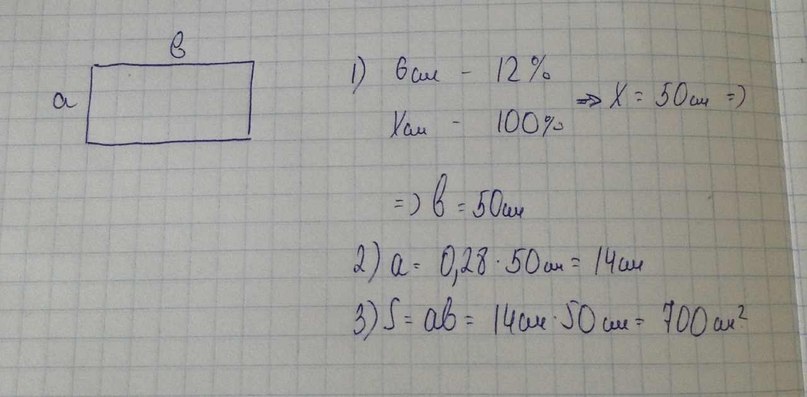 в
а
1) 6см - 12%
Xсм - 100%
=> X = 50см =>
=> в = 50см
2) а = 0,28 · 50см = 14см
3) S = ав = 14см · 50см = 700см²